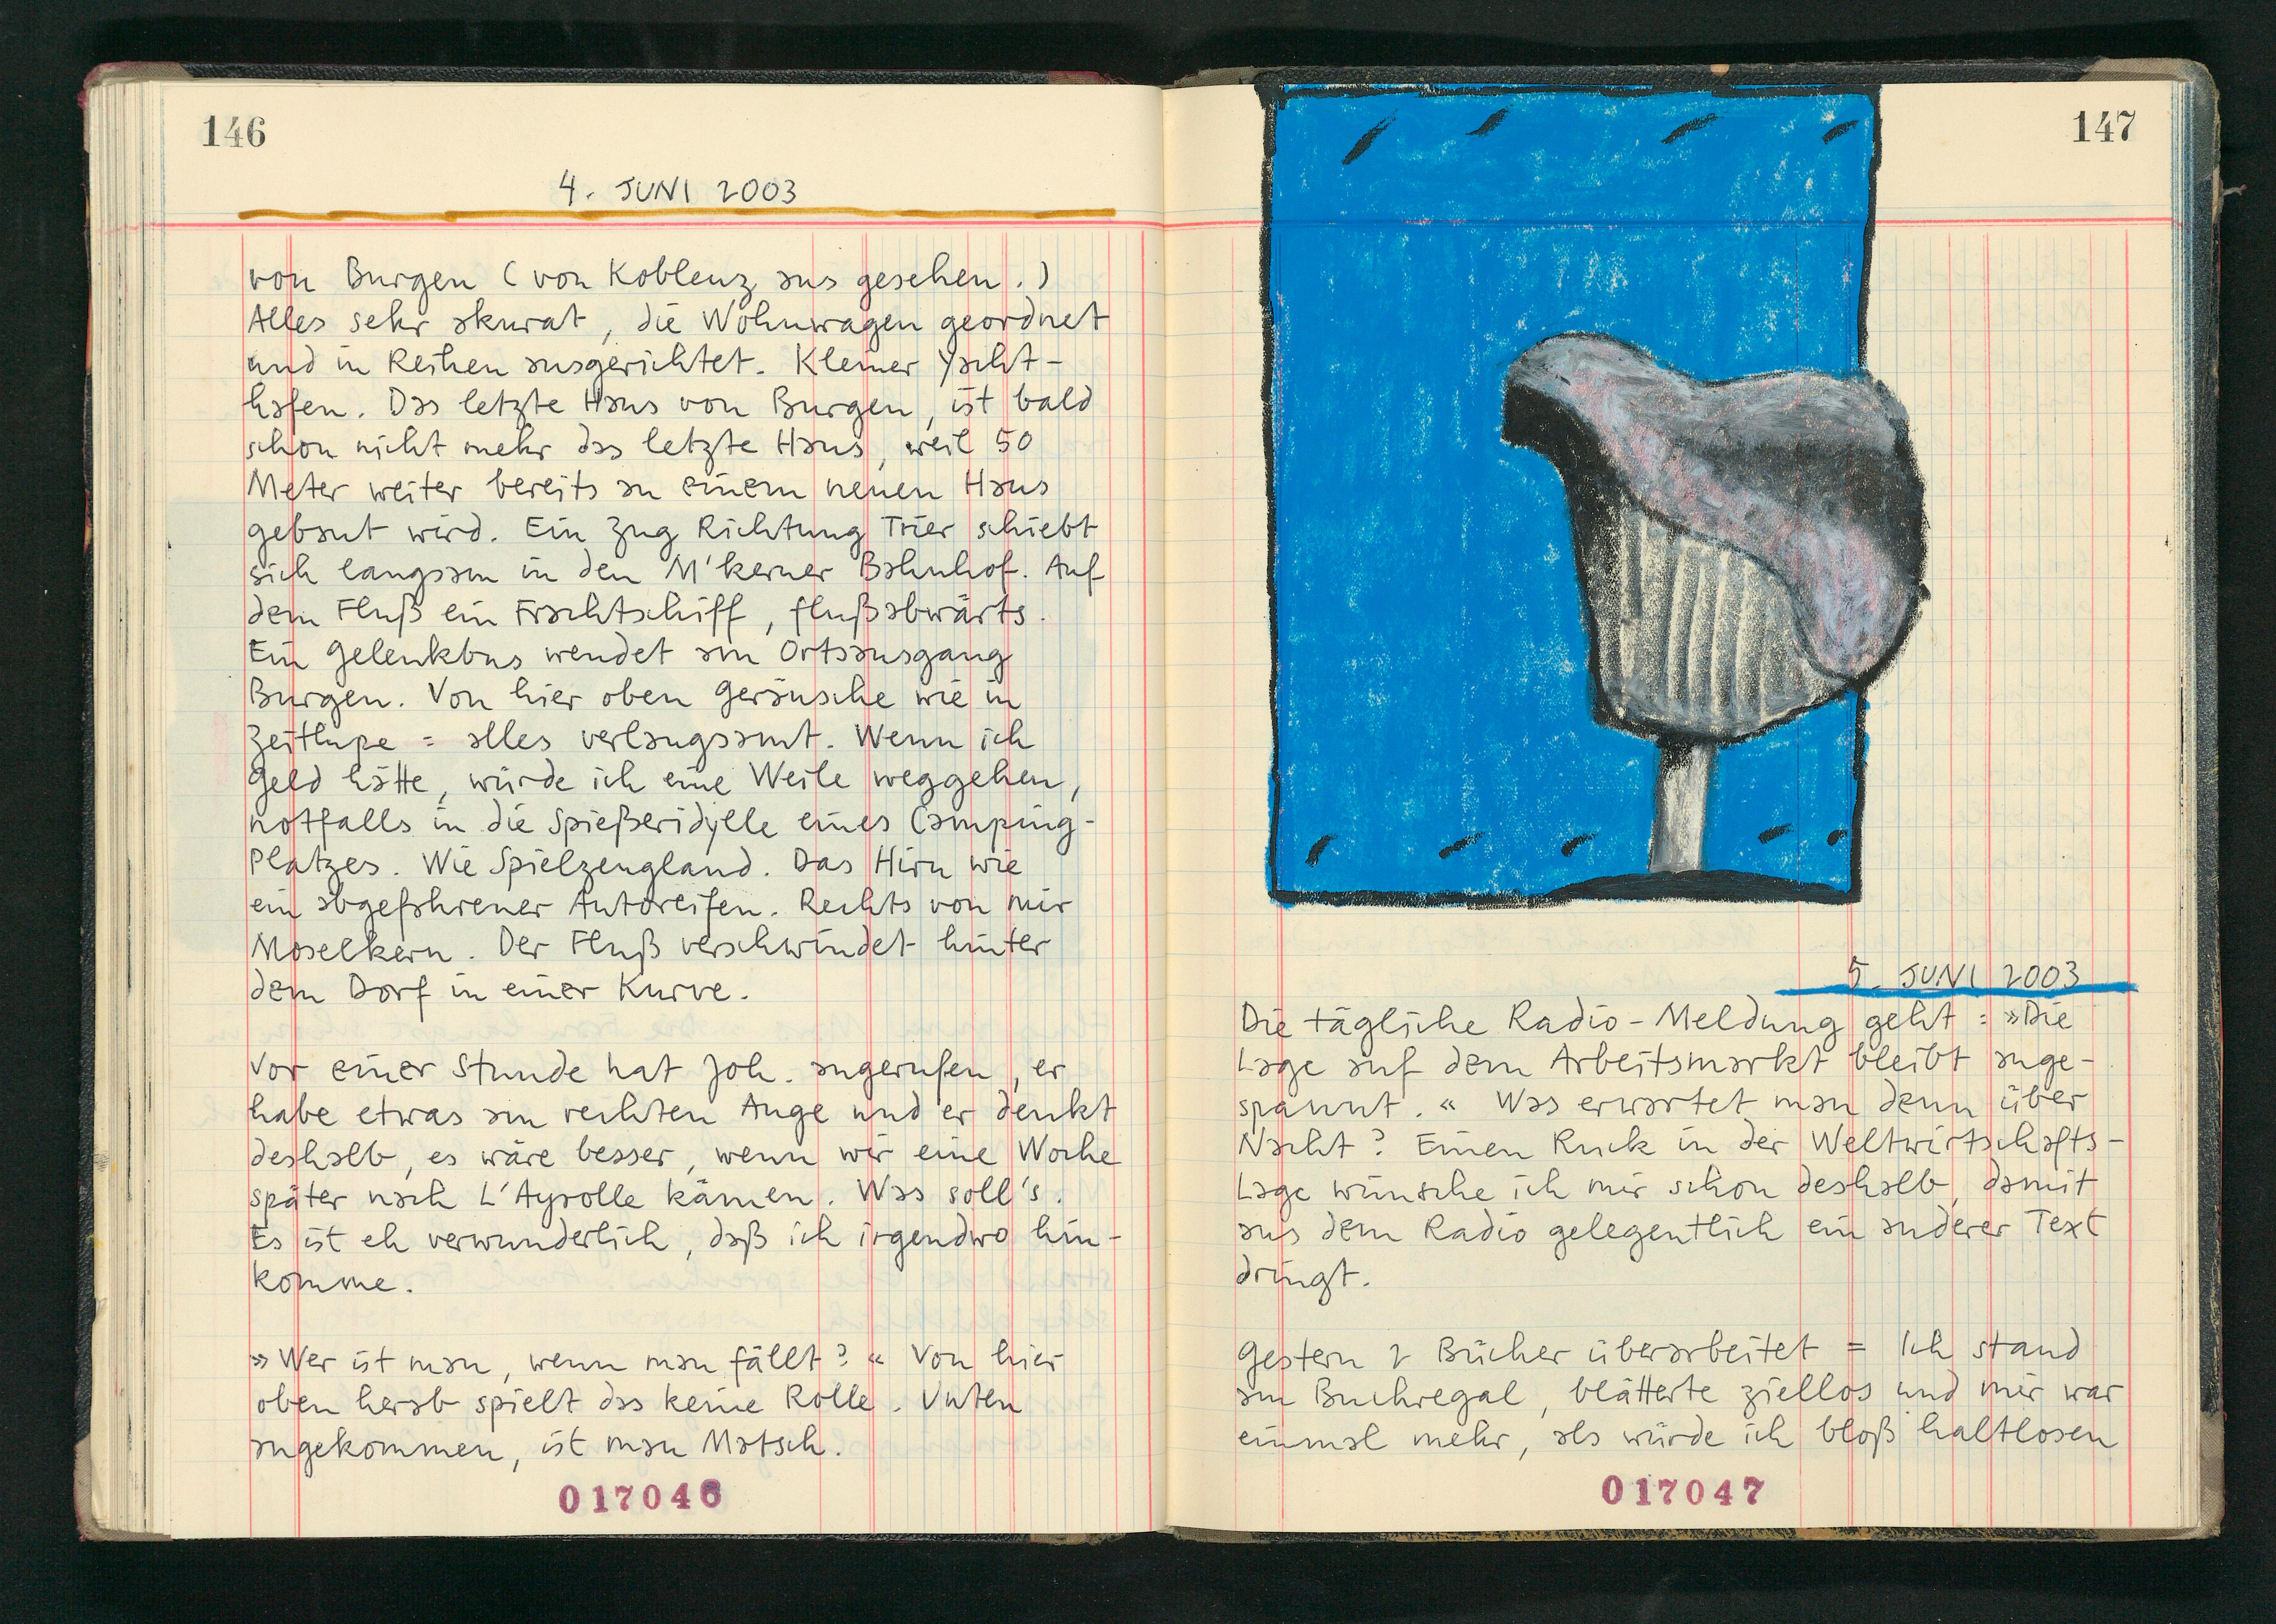 146
4. JUNI 2003
von Burgen (von Koblenz aus gesehen.)
Alles sehr akurat, die Wohnwagen geordnet
und in Reihen ausgerichtet. Kleiner Yacht-
hafen. Das letzte Haus von Burgen, ist bald
schon nicht mehr das letzte Haus, weil 50
Meter weiter bereits an einem neuen Haus
gebaut wird. Ein Zug Richtung Trier schiebt
sich langsam in den M'kerner Bahnhof. Auf
dem Fluß ein Frachtschiff, flußabwärts.
Ein Gelenkbus wendet am Ortsausgang
Burgen. Von hier oben Geräusche wie in
Zeitlupe = alles verlangsamt. Wenn ich
Geld hätte, würde ich eine Weile weggehen,
notfalls in die Spießeridylle eines Camping-
Platzes. Wie Spielzeugland. Das Hirn wie
ein abgefahrener Autoreifen. Rechts von mir
Moselkern. Der Fluß verschwindet hinter
dem Dorf in einer Kurve.
Vor einer Stunde hat Joh. angerufen, er
habe etwas am rechten Auge und er denkt
deshalb, es wäre besser, wenn wir eine Woche
später nach L'Ayrolle kämen. Was soll's.
Es ist eh verwunderlich, daß ich irgendwo hin-
komme.
»Wer ist man, wenn man fällt?« Von hier
oben herab spielt das keine Rolle. Unten
angekommen, ist man Matsch.
017046
147
5. JUNI 2003
Die tägliche Radio-Meldung geht: »Die
Lage auf dem Arbeitsmarkt bleibt ange-
spannt.« Was erwartet man denn über
Nacht? Einen Ruck in der Weltwirtschafts-
Lage wünsche ich mir schon deshalb, damit
aus dem Radio gelegentlich ein anderer Text
dringt.
Gestern 2 Bücher überarbeitet = Ich stand
am Buchregal, blätterte ziellos und mir war
einmal mehr, als würde ich bloß haltlosen
017047